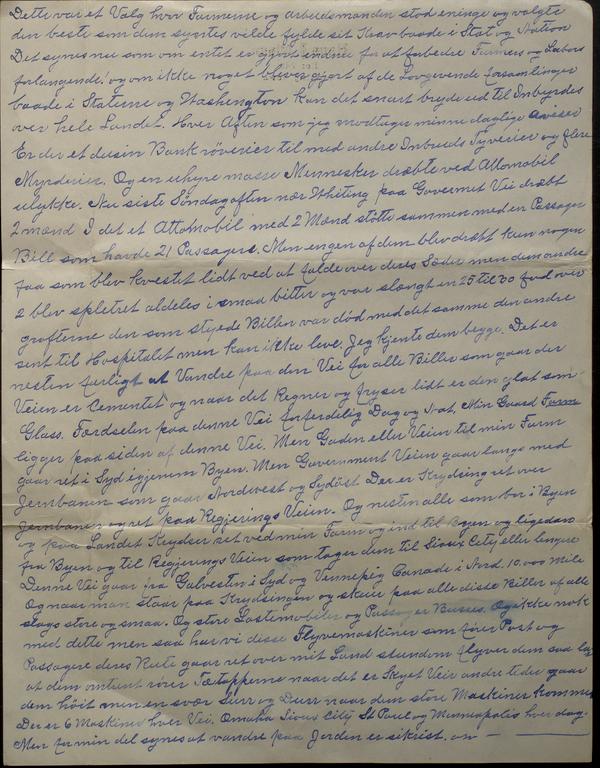 Dette var et Valg hvor Farmerne og Arbeidsmanden stod eninge og valgte
den beste som dem syntes vilde fylde sit Krav baade i Stat og Nation
Det synes nu som om entet er gjort endnu for at forbedre Farmers og Labors
forlangende! og om ikke noget bliver gjort af de Lovgevende Forsamlinger
baade i Staterne og Washington kan det snart bryde ud til Inbyrdes
over hele Landet. Hver Aften som jeg modtager minne daglige Aviser
Er der et dusin Bank röverier til med andre Inbruds Tyverier og flere
Myrderier. Og en uhyre masse Mennesker dræbte ved Attomobil
ulykke. Nu siste Söndag aften nær Whiting paa Goverment Vei dræbt
2 mænd I det et Attomobil med 2 Mænd stötte sammen med en Passager
Bill som havde 21 Passagers. Men engen af dem blev dræbt kun nogen
faa som blev kvestet lidt ved at falde over deres Sæder men dem andre
2 blev spletret aldeles i smaa bitter og var slængt en 25 til 30 fod over
gröfterne den som styede Billen var död med det samme den andre
sent til Hospitalet men kan ikke leve. Jeg kjente dem begge. Det er
nesten farligt at Vandre paa den Vei for alle Biller som gaar der
Veien er Cementet og naar det Regner og fryser lidt er den glat som
Glass. Færdselen paa denne Vei forferdelig Dag og Nat. Min Gaard Farm
ligger paa siden af denne Vei. Men Gaden eller Veien til min Farm
gaar ret i Syd igjenem Byen. Men Government Veien gaar langs med
Jernbanen som gaar Nordwest og Sydöst Der er Krydsing ret over
Jernbanen og ret paa Regjerings Veien. Og nesten alle som bor i Byen
og paa Landet Krydser ret ved min Farm og ind til Byen og ligedan
fra Byen og til Regjerings Veien som tager dem til Sioux City eller lengere
Denne Vei gaar fra Galveston i Syd og Vennepeg Canade i Nord. 10.000 Mile
Og naar man staar paa Krydsingen og skuer paa alle disse Biller af alle
slags store og smaa. Og store Lastemobiler og Passager Busses. Og ikke nok
med dette men saa har vi disse Flyvemaskiner som förer Post og
Passagere deres Rute gaar ret over mit Land stundem flyver dem saa lav
at dem omtrent rörer Trætopperne naar det er Skyet Veir andre tider gaar
dem höit men en svær Surr og Durr naar dem store Maskiner kommer
Der er 6 Maskiner hver Vei. Omaha Sioux City St Paul og Minneapolis hver dag.
Men for min del synes at vandre paa Jorden er sikrist. on —